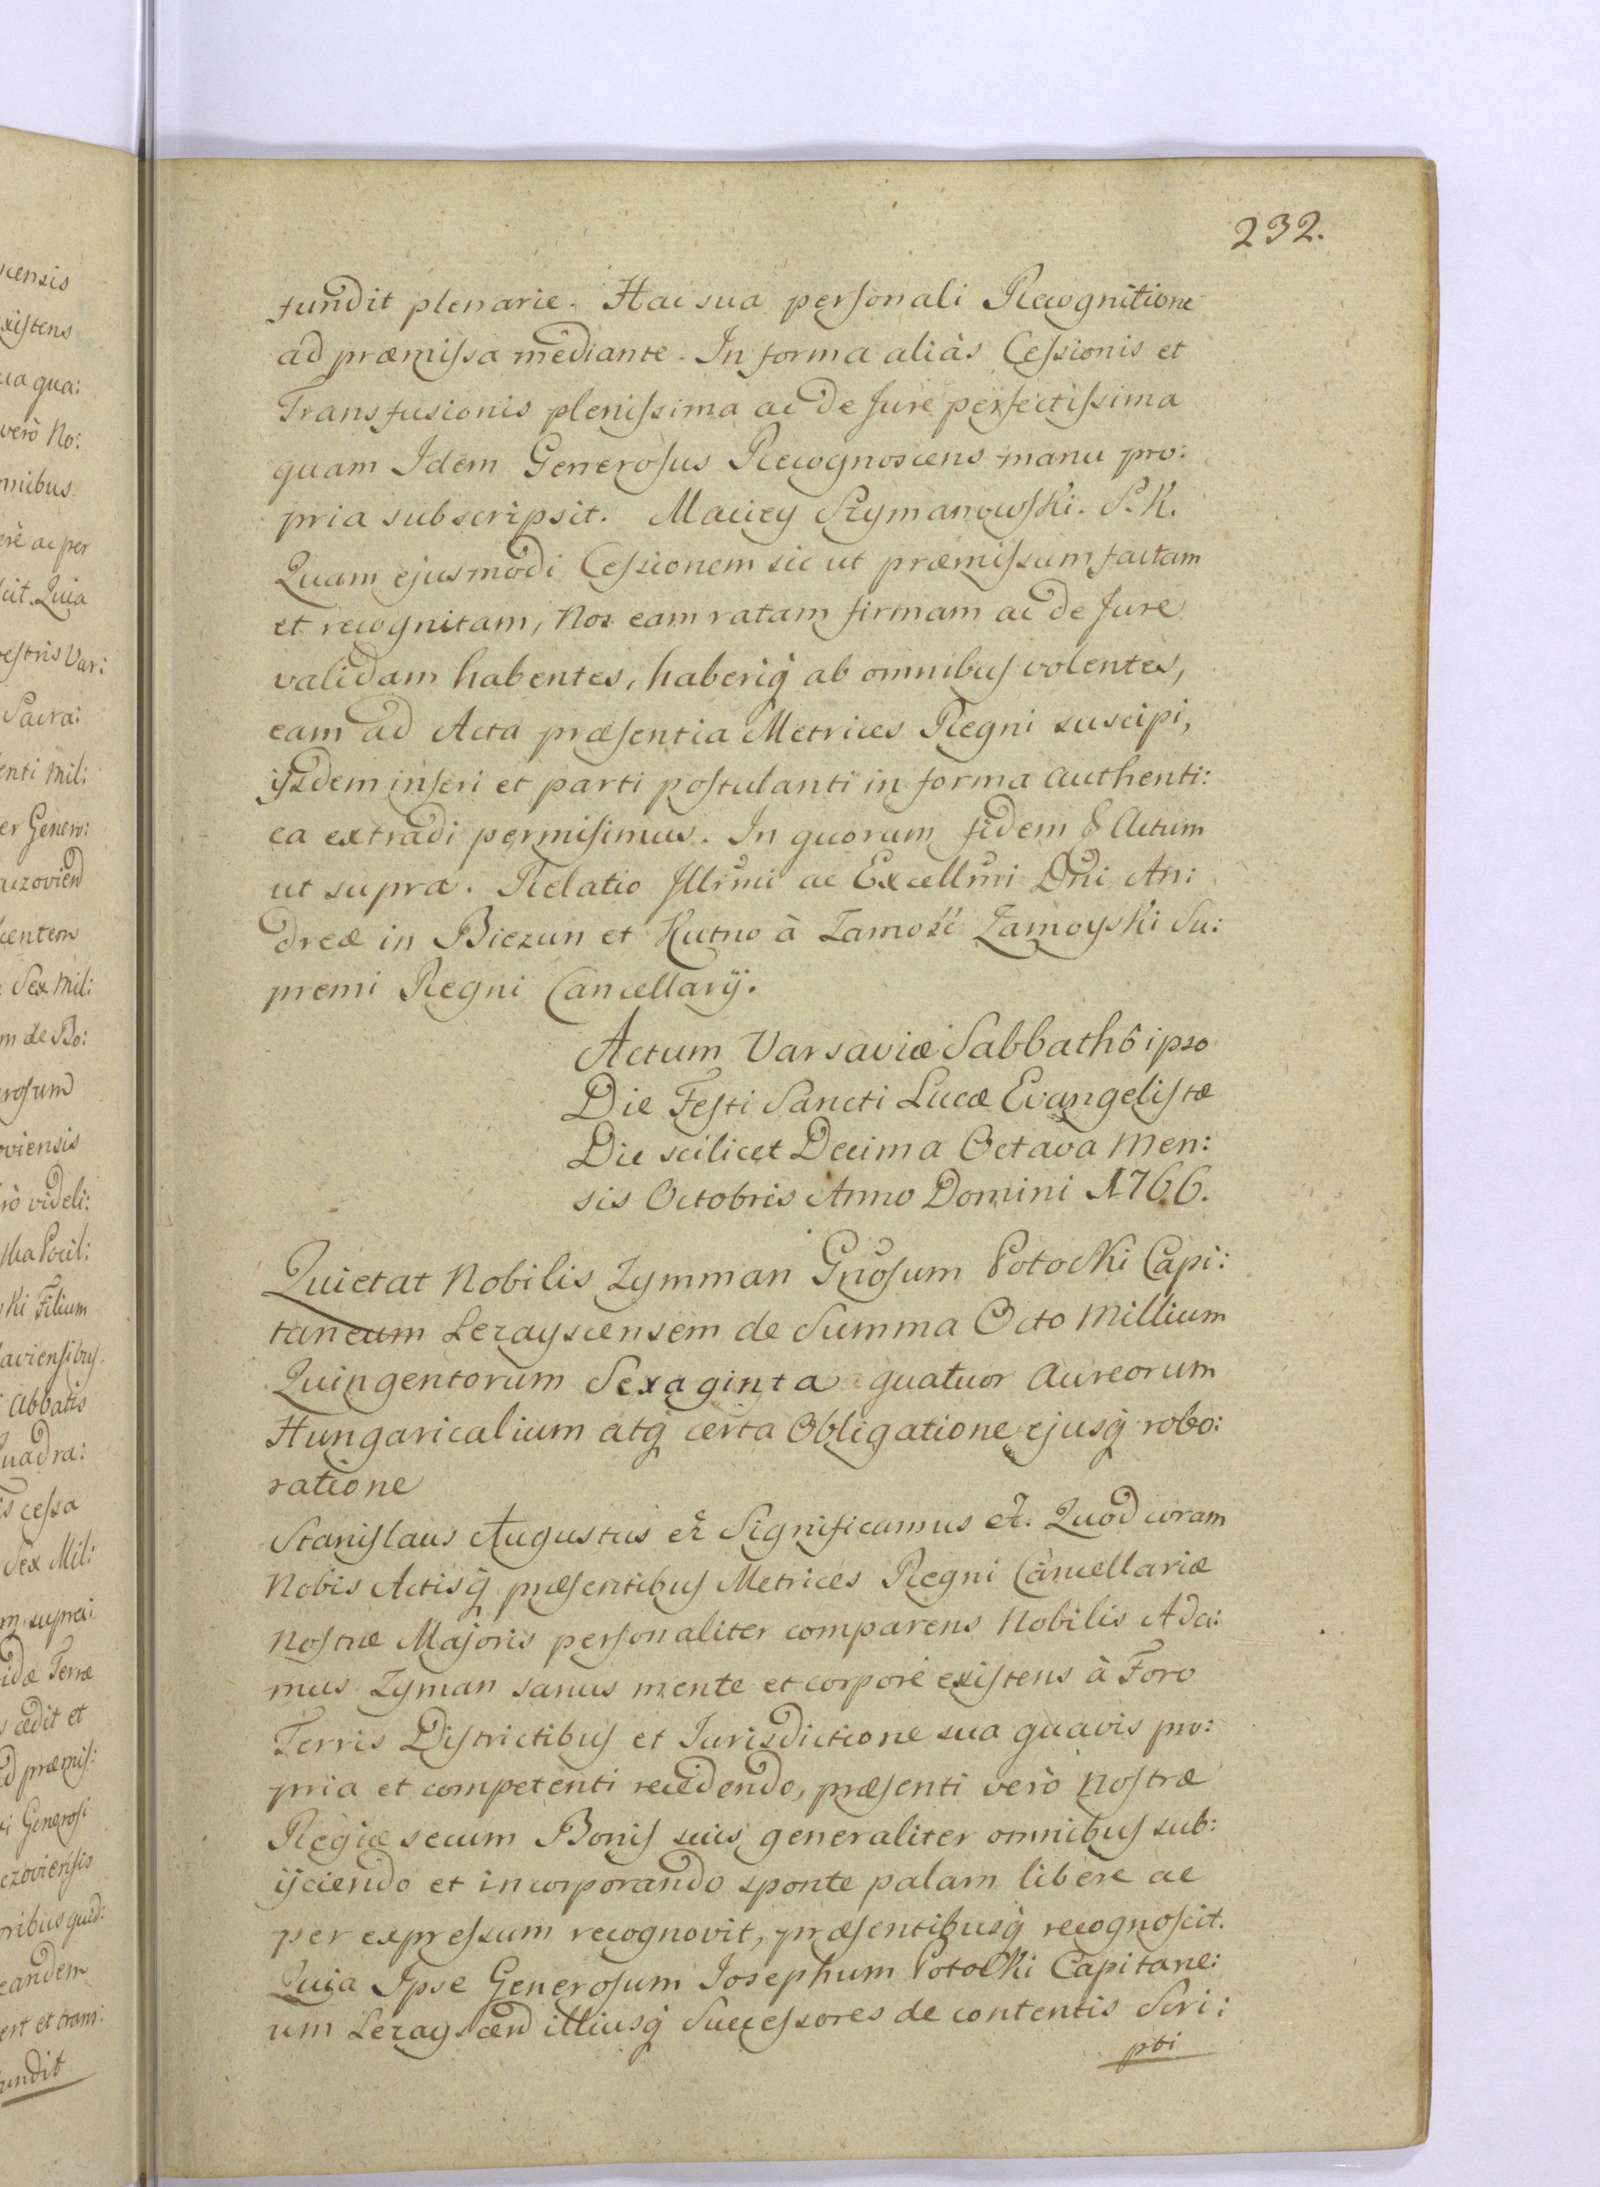 232.
fundit plenarie. Hac sua personali Recognitione
ad præmissa mediante. In forma aliàs Cessionis et
Transfusionis plenissima ac de Jure perfectissima
quam Idem Generosus Recognoscens manu pro:
pria subscripsit. Maciey Szymanowski. S. K.
Quam ejusmodi Cessionem sic ut præmissum factam
et recognitam, Nos eam ratam firmam ac de Jure
validam habentes, haberiq́ ab omnibus volentes,
eam ad Acta præsentia Metrices Regni suscipi,
ijsdem inseri et parti postulanti in forma authenti:
ca extradi permisimus. In quorum fidem & Actum
ut supra. Relatio Illrmi ac Excellmi Dni An:
dreæ in Biezun et Kutno à Zamość Zamoyski Su:
premi Regni Cancellarij.
Actum Varsaviæ Sabbathô ipso
Die Festi Sancti Lucæ Evangelistæ
Die scilicet Decima Octava Men:
sis Octobris Anno Domini 1766.
Quietat Nobilis Zymman Gnosum Potocki Capi:
taneum Lezayscensem de Summa Octo Millium
Quingentorum Sexaginta quatuor Aureorum
Hungaricalium atq́ certa Obligatione ejusq́ robo:
ratione
Stanislaus Augustus et Significamus et. Quod coram
Nobis Actisq́ præsentibus Metrices Regni Cancellariæ
Nostræ Majoris personaliter comparens Nobilis Ada:
mus Zyman sanus mente et corpore existens à Foro
Terris Districtibus et Jurisdictione sua quavis pro:
pria et competenti recedendo, præsenti verò Nostræ
Regiæ secum Bonis suis generaliter omnibus sub:
ijciendo et incorporando sponte palam libere ac
per expressum recognovit, præsentibusq́ recognoscit.
Quia Ipse Generosum Josephum Potocki Capitane:
um Lezayscen illiusq́ Successores de contentis Scri:
pti